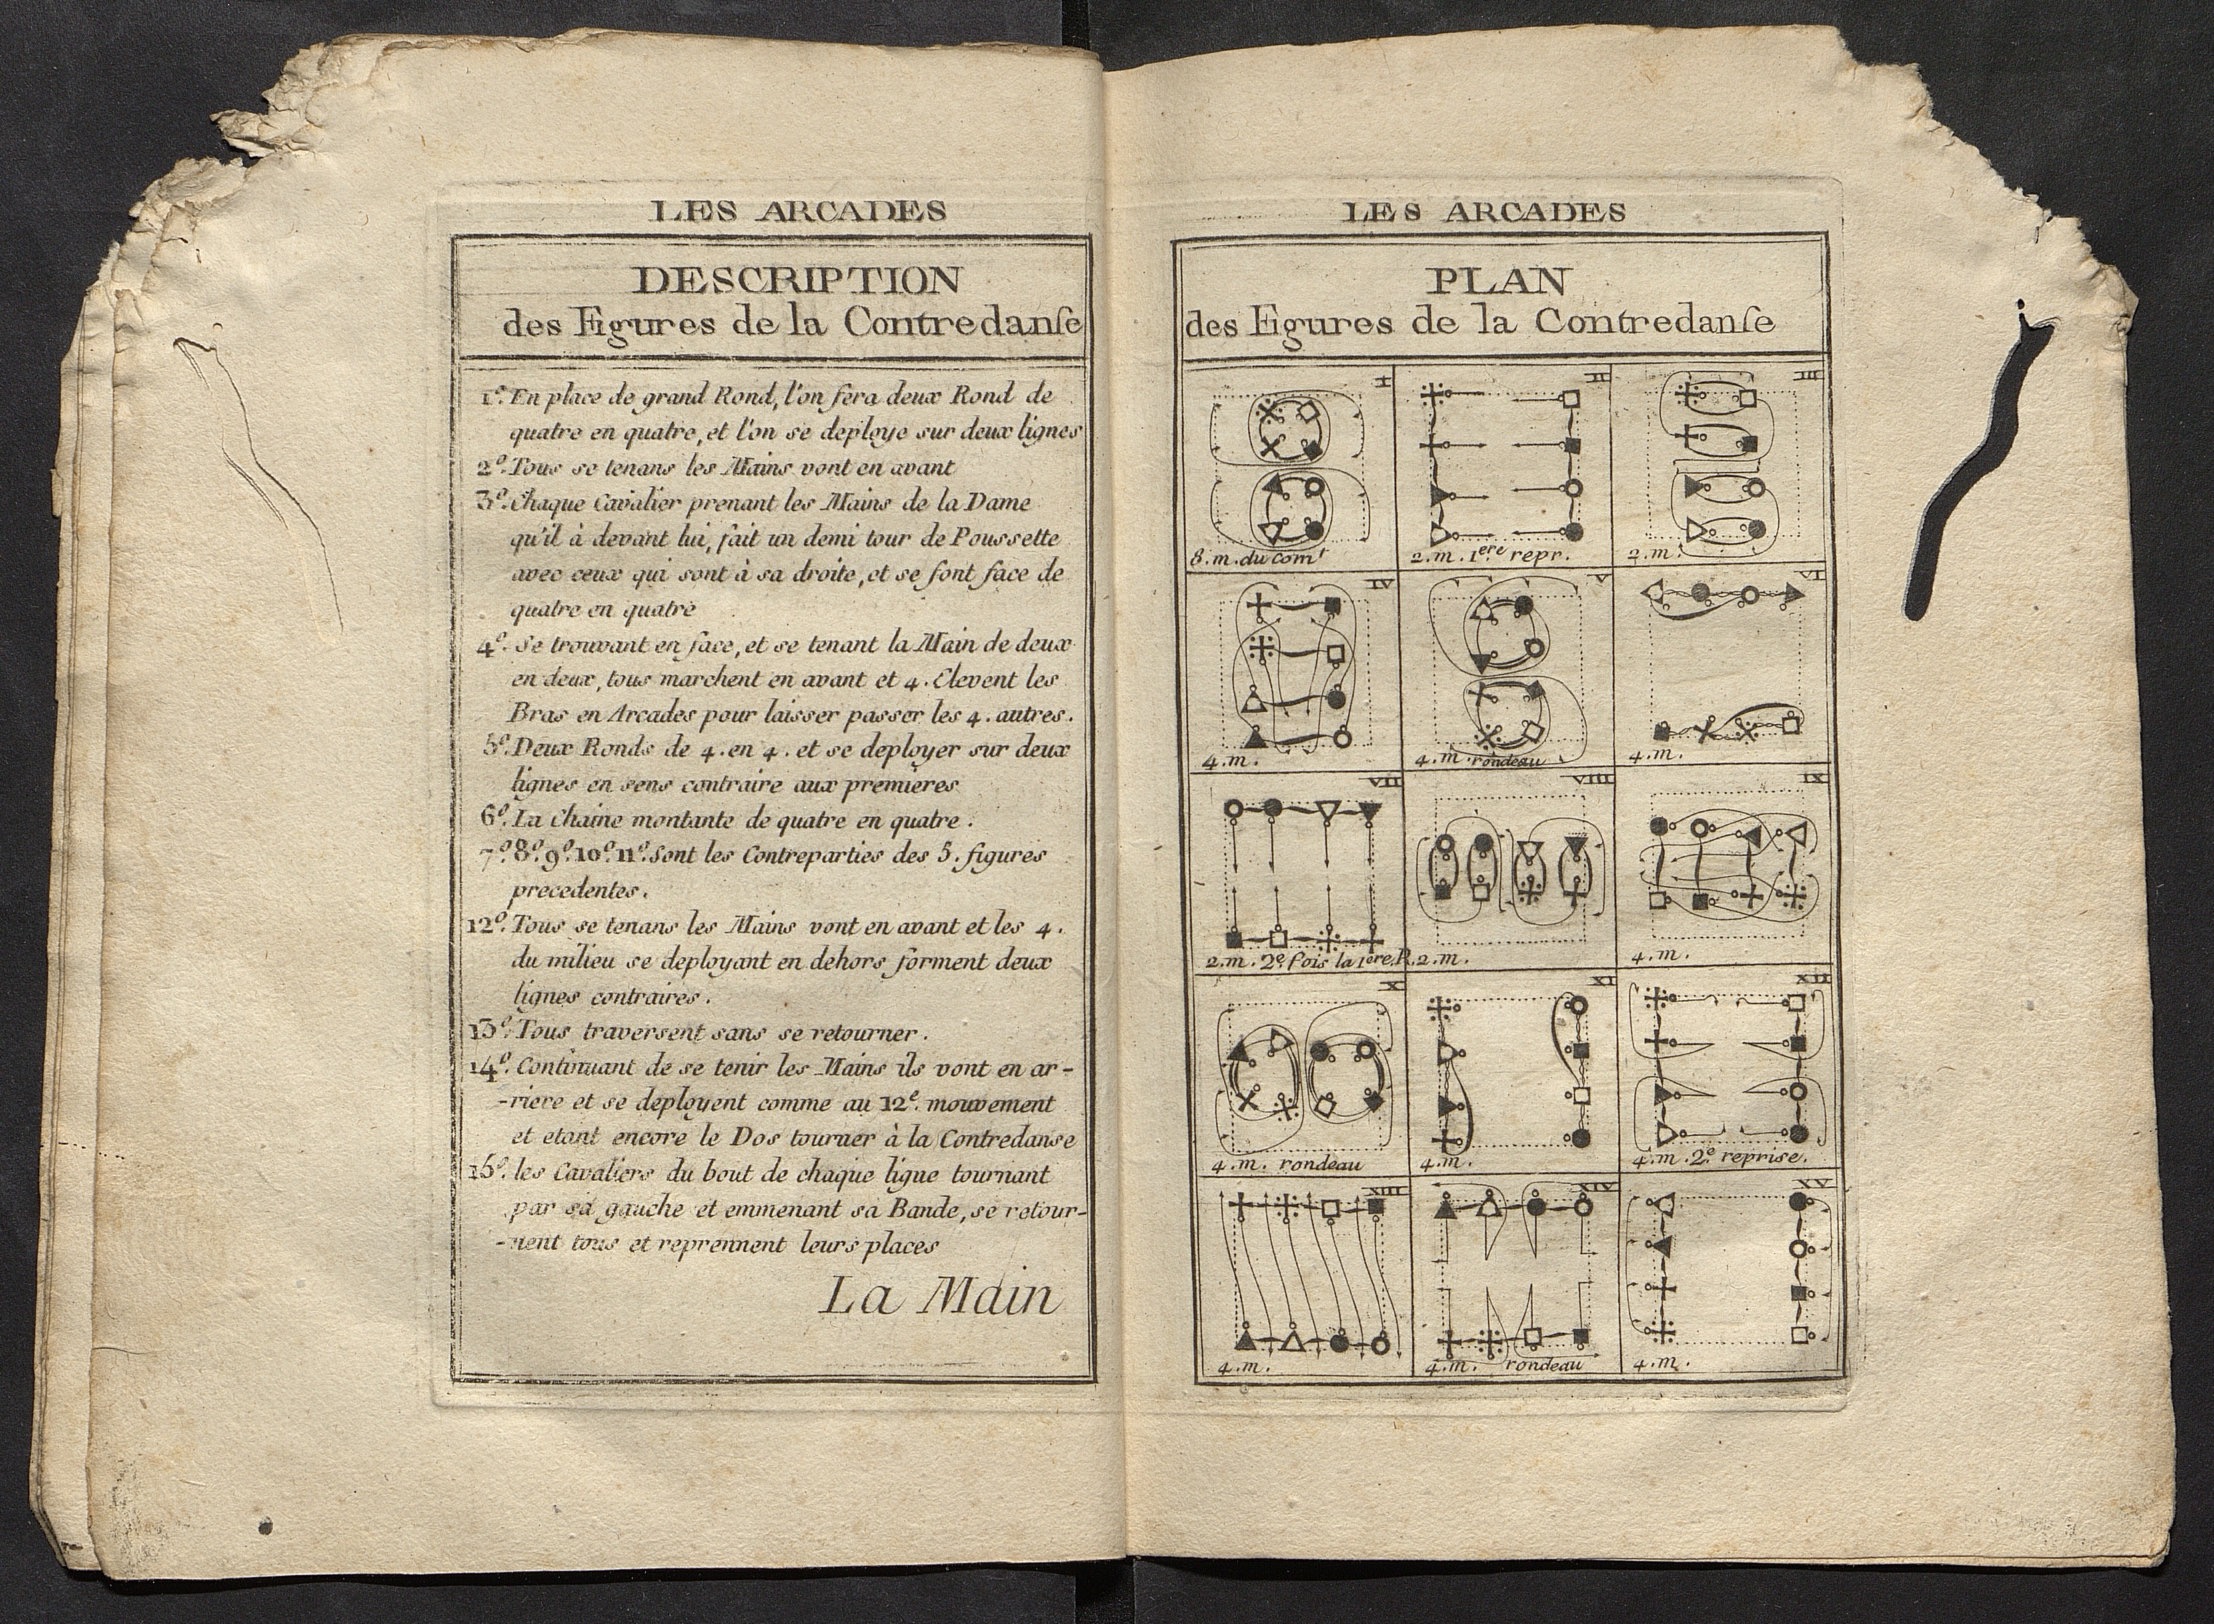 LES ARCADES
DESCRIPTION
des Figures de la Contredanſe
1º. En place de grand Rond, l'on fera deux Rond de
quatre en quatre, et l'on se deploye sur deux lignes
2º. Tous se tenans les Mains vont en avant
3º. Chaque Cavalier prenant les Mains de la Dame
qu'il à devant lui, fait un demi tour de Poussette
avec ceux qui sont à sa droite, et se font face de
quatre en quatre
4º. Se trouvant en face, et se tenant la Main de deux
en deux, tous marchent en avant et 4. Elevent les
Bras en Arcades pour laisser passer les 4. autres.
5º. Deux Ronds de 4. en 4. et se deployer sur deux
lignes en sens contraire aux premieres
6º. La Chaine montante de quatre en quatre.
7º. 8º. 9º. 10º. 11º. Sont les Contreparties des 5. figures
precedentes.
12º. Tous se tenans les Mains vont en avant et les 4.
du milieu se deployant en dehors forment deux
lignes contraires.
13º. Tous traversent sans se retourner.
14º. Continuant de se tenir les Mains ils vont en ar-
-riere et se deployent comme au 12e. mouvement
et etant encore le Dos tourner à la Contredanse
15º. les Cavaliers du bout de chaque ligne tournant
par sa gauche et emmenant sa Bande, se retour-
-nent tous et reprennent leurs places
La Main
LES ARCADES
PLAN
des Figures de la Contredanſe
I
8.m. du Comt
II
2.m. 1ere. repr.
III
2.m.
IV
4.m.
V
4.m. rondeau
VI
4.m.
VII
2.m. 2e. fois la 1ere. R.
VIII
2.m.
IX
4.m.
X
4.m. rondeau
XI
4.m.
XII
4.m. 2e reprise.
XIII
4.m.
XIV
4.m. rondeau
XV
4.m.